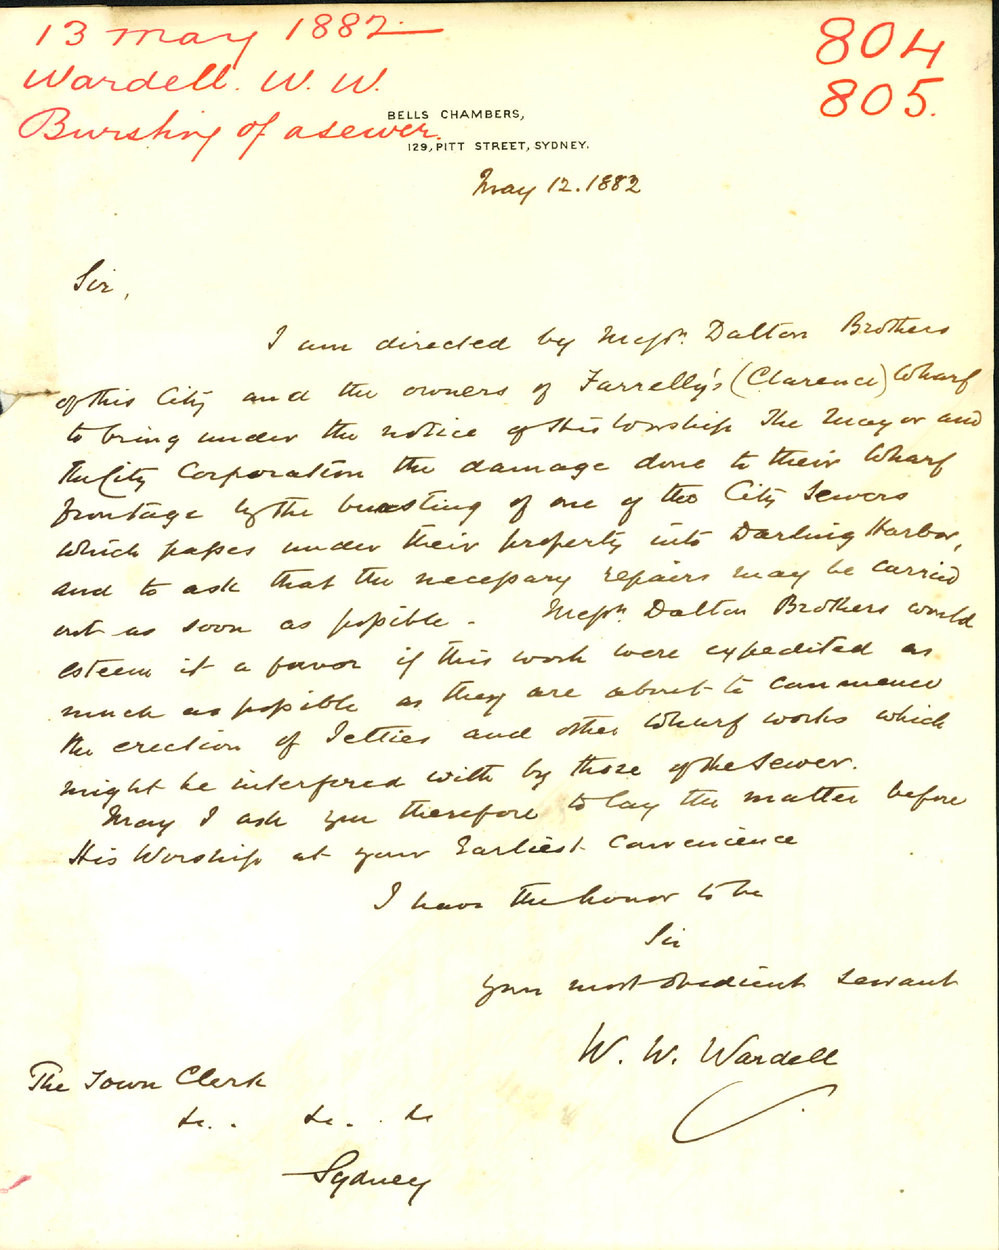 13 May 1882
Wardell. W. W.
Bursting of a sewer.
804
805.
BELLS CHAMBERS,
129, PITT STREET, SYDNEY.
May 12. 1882
Sir,
I am directed by Messrs. Dalton Brothers
of this City and the owners of Farrelly's (Clarence) Wharf
to bring under the notice of His Worship The Mayor and
The City Corporation the damage done to their Wharf
frontage by the bursting of one of the City Sewers
which passes under their property into Darling Harbor,
and to ask that the necessary repairs may be carried
out as soon as possible - Messrs. Dalton Brothers would
esteem it a favor if this work were expedited as
much as possible as they are about to commence
the erection of Jetties and other Wharf works which
might be interfered with by those of the Sewer.
May I ask you therefore to lay the matter before
His Worship at your Earliest convenience
I have the honor to be
Sir
your most obedient servant
W. W. Wardell
The Town Clerk
&c. . &c. . &c
Sydney